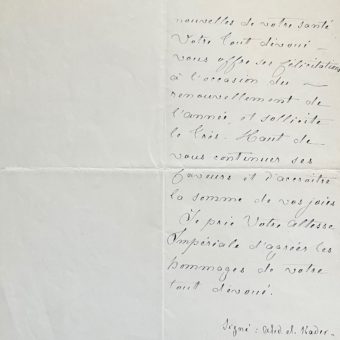 nouvelles de votre santé
Votre tout dévoué —
vous offre ses félicitations
à l'occasion du —
renouvellement de
l'année, et sollicite
le Très-Haut de
vous continuer ses
faveurs et d'accroître
la somme de vos joies
Je prie Votre Altesse
Impériale d'agréer les
hommages de votre
tout dévoué.
Signé: Abd el Kader-